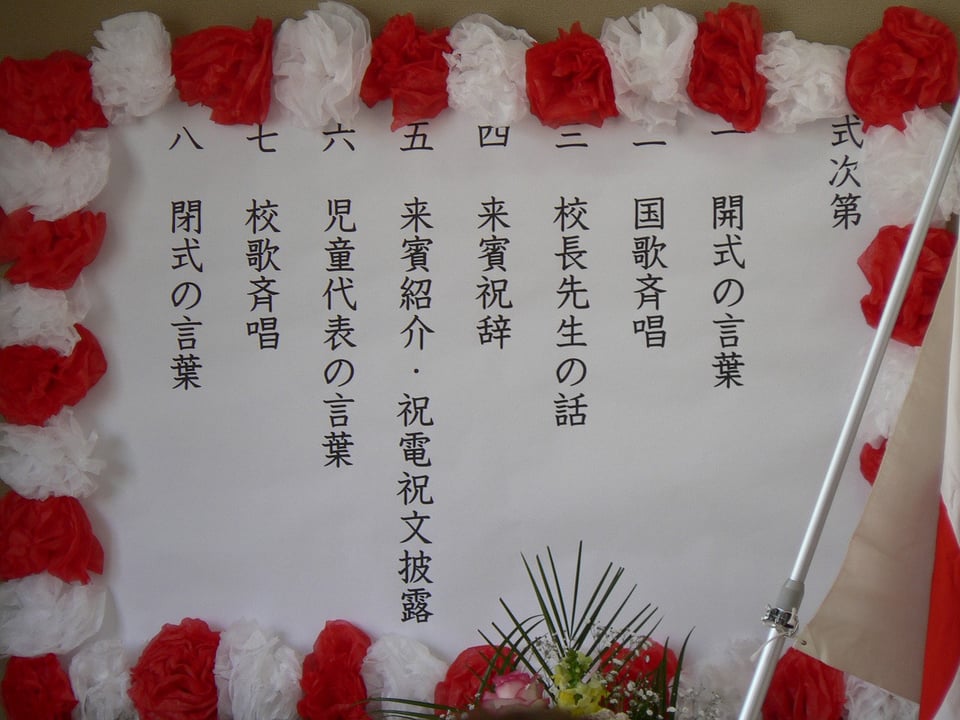 式次第
一 開式の言葉
二 国歌斉唱
三 校長先生の話
四 来賓祝辞
五 来賓紹介・祝電祝文披露
六 児童代表の言葉
七 校歌斉唱
八 閉式の言葉